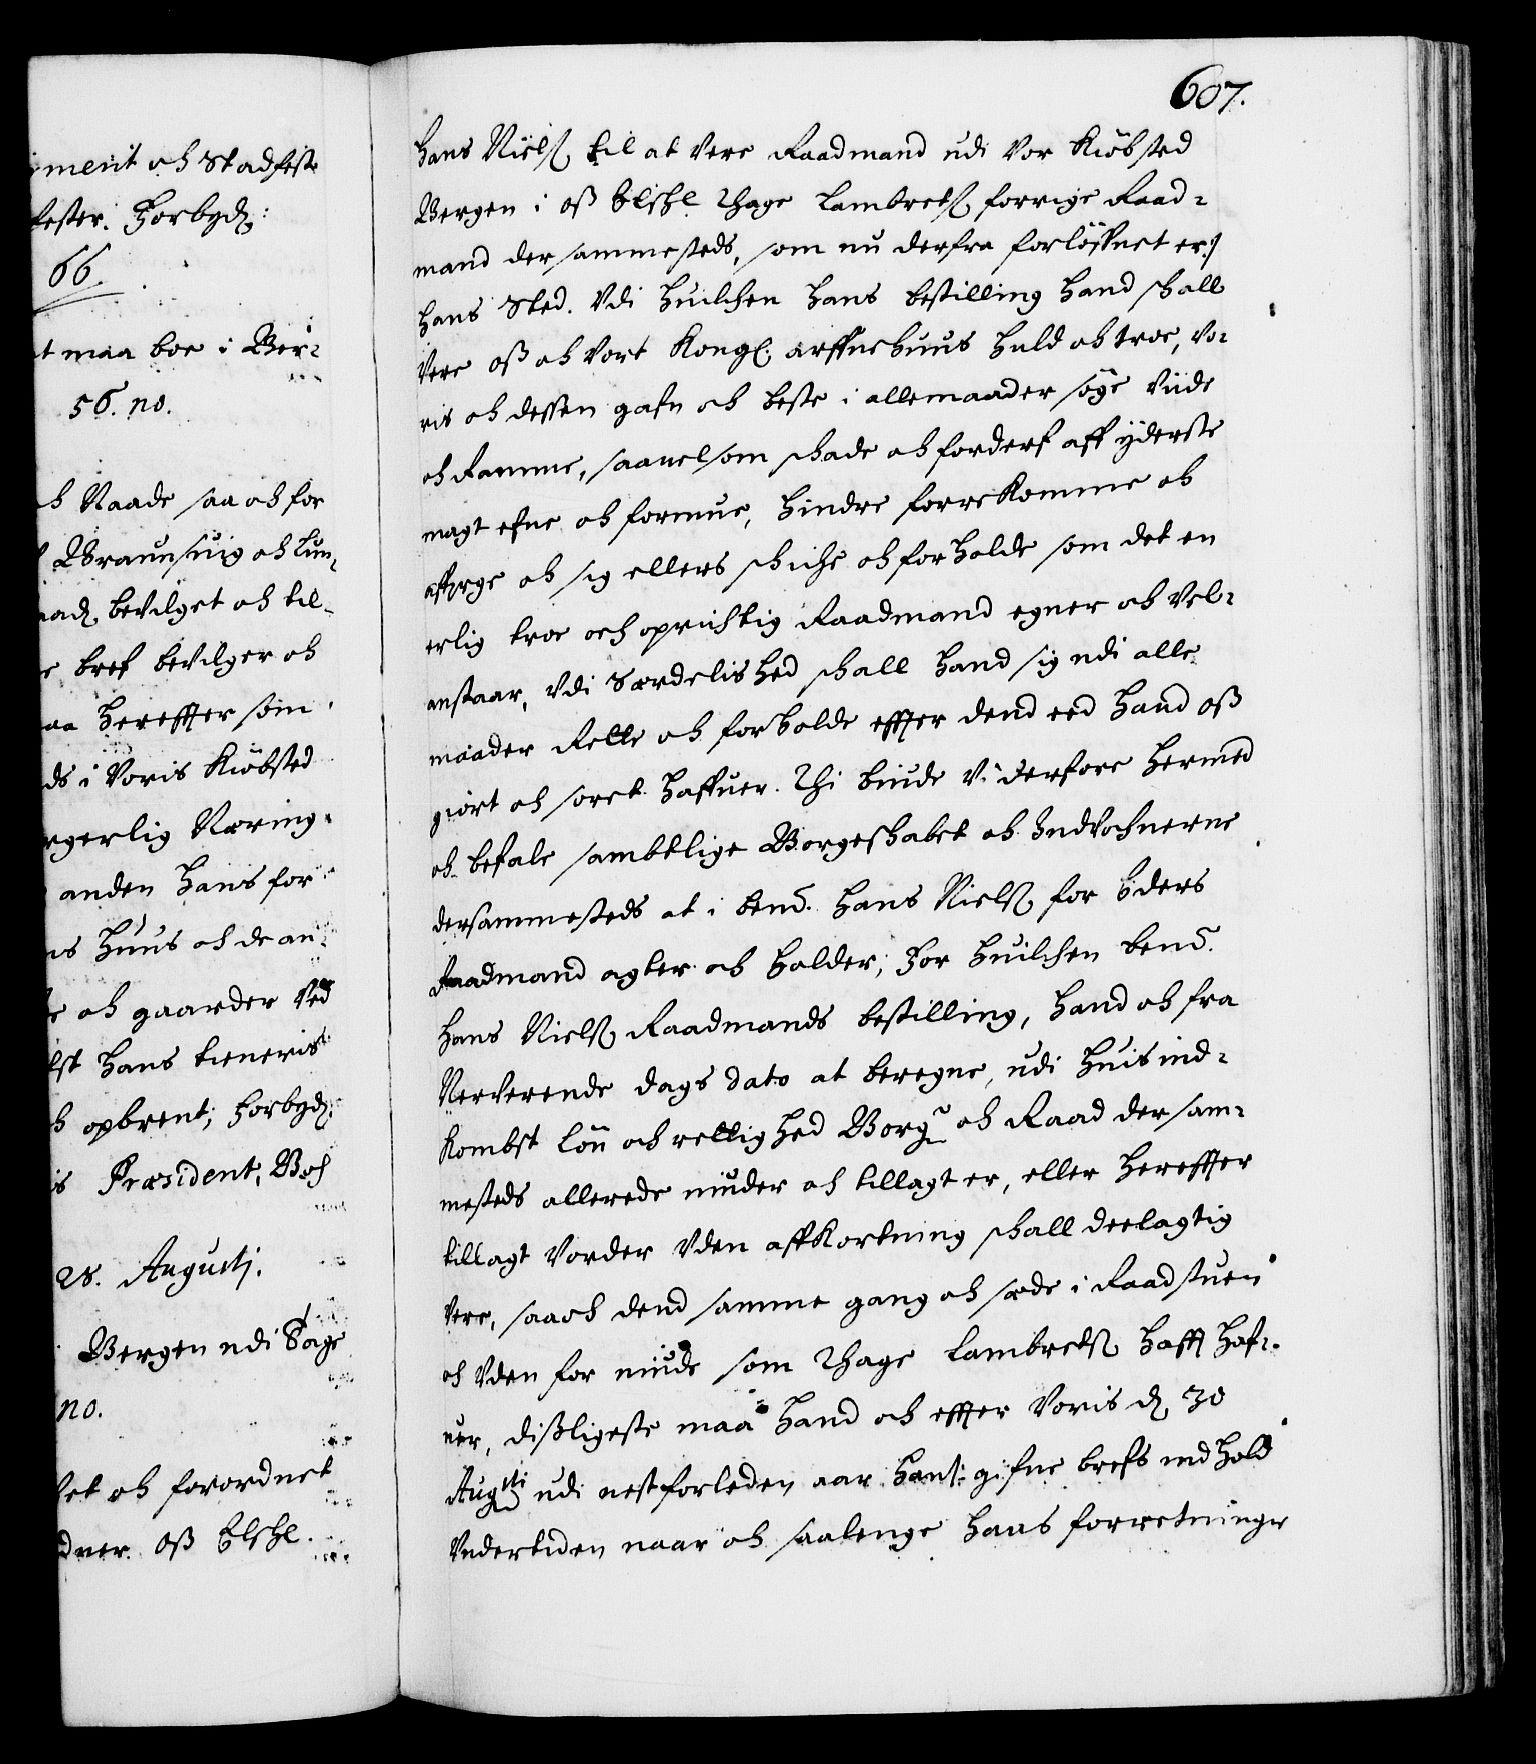 607.
iment och Stadfeste
fester. Forbydḍ:
66.
t maa boe i Ber-
56. no.
h Naade saa och for
Braunsuig och Lun-
aadͤ bevilget och til-
e bref bevilger och
aa herefter som
ds i Voris Kiöbsted
rgerlig Næring
anden hans for
ns Huus och de an-
e och gaarder ved
lst hans tieneriste
h opbrent, Forbydͤ
is Præsident, Bor
28. Augustj.
Bergen udi Tage
no.
let och forordnet
dner. Oss Elskl.
Hans Niels: til at være Raadmand udi Vor Kiöbsted
Bergen i oss Elskl. Thage Lambrets: forrige Raad-
mand dersammesteds, som nu derfra forlöffuet er,
hans Sted. Udi huilchen hans bestilling hand schall
Vere oss och Vort Kongl: arffue Huus huld och troe, Vo-
ris och dessen gafn och beste i allemaader söge Viide
och Ramme, saauelsom schade och forderf aff yderste
magt efne och formue, hindre forrekomme och
afverge och sig ellers schiche och forholde som det en
erlig troe och oprichtig Raadmand egner och Vel-
anstaar, Udi Særdelished schall hand sig udi alle
maader Rette och forholde effter dend eed hand oss
giort och soret haffuer. Thi biude Vi derfore hermed
och befale sambtlige Borgeschabet och Indvohnerne
dersammesteds at i bemᵗᵉ. Hans Niels: for Eders
Raadmand agter och holder, For huilchen bemᵗᵉ.
Hans Niels: Raadmands bestilling, hand och fra
Nerverende dags dato at beregne, udi huis ind-
kombst lön och rettighed Borgᵐ och Raad dersam-
mesteds allerede niuder och tillagt er, eller hereffter
tillagt Vorder Uden affkortning schall deelagtig
Vere, saaoch dend samme gang och sæde i Raadstuen
och Uden for niude som Thage Lambrets: hafft haf-
uer, disligeste maa hand och effter Voris dͤ 30
Augᵗⁱ udi nestforleden aar hans: gifne brefs indhold
Undertiden naar och saalenge hans forretninger